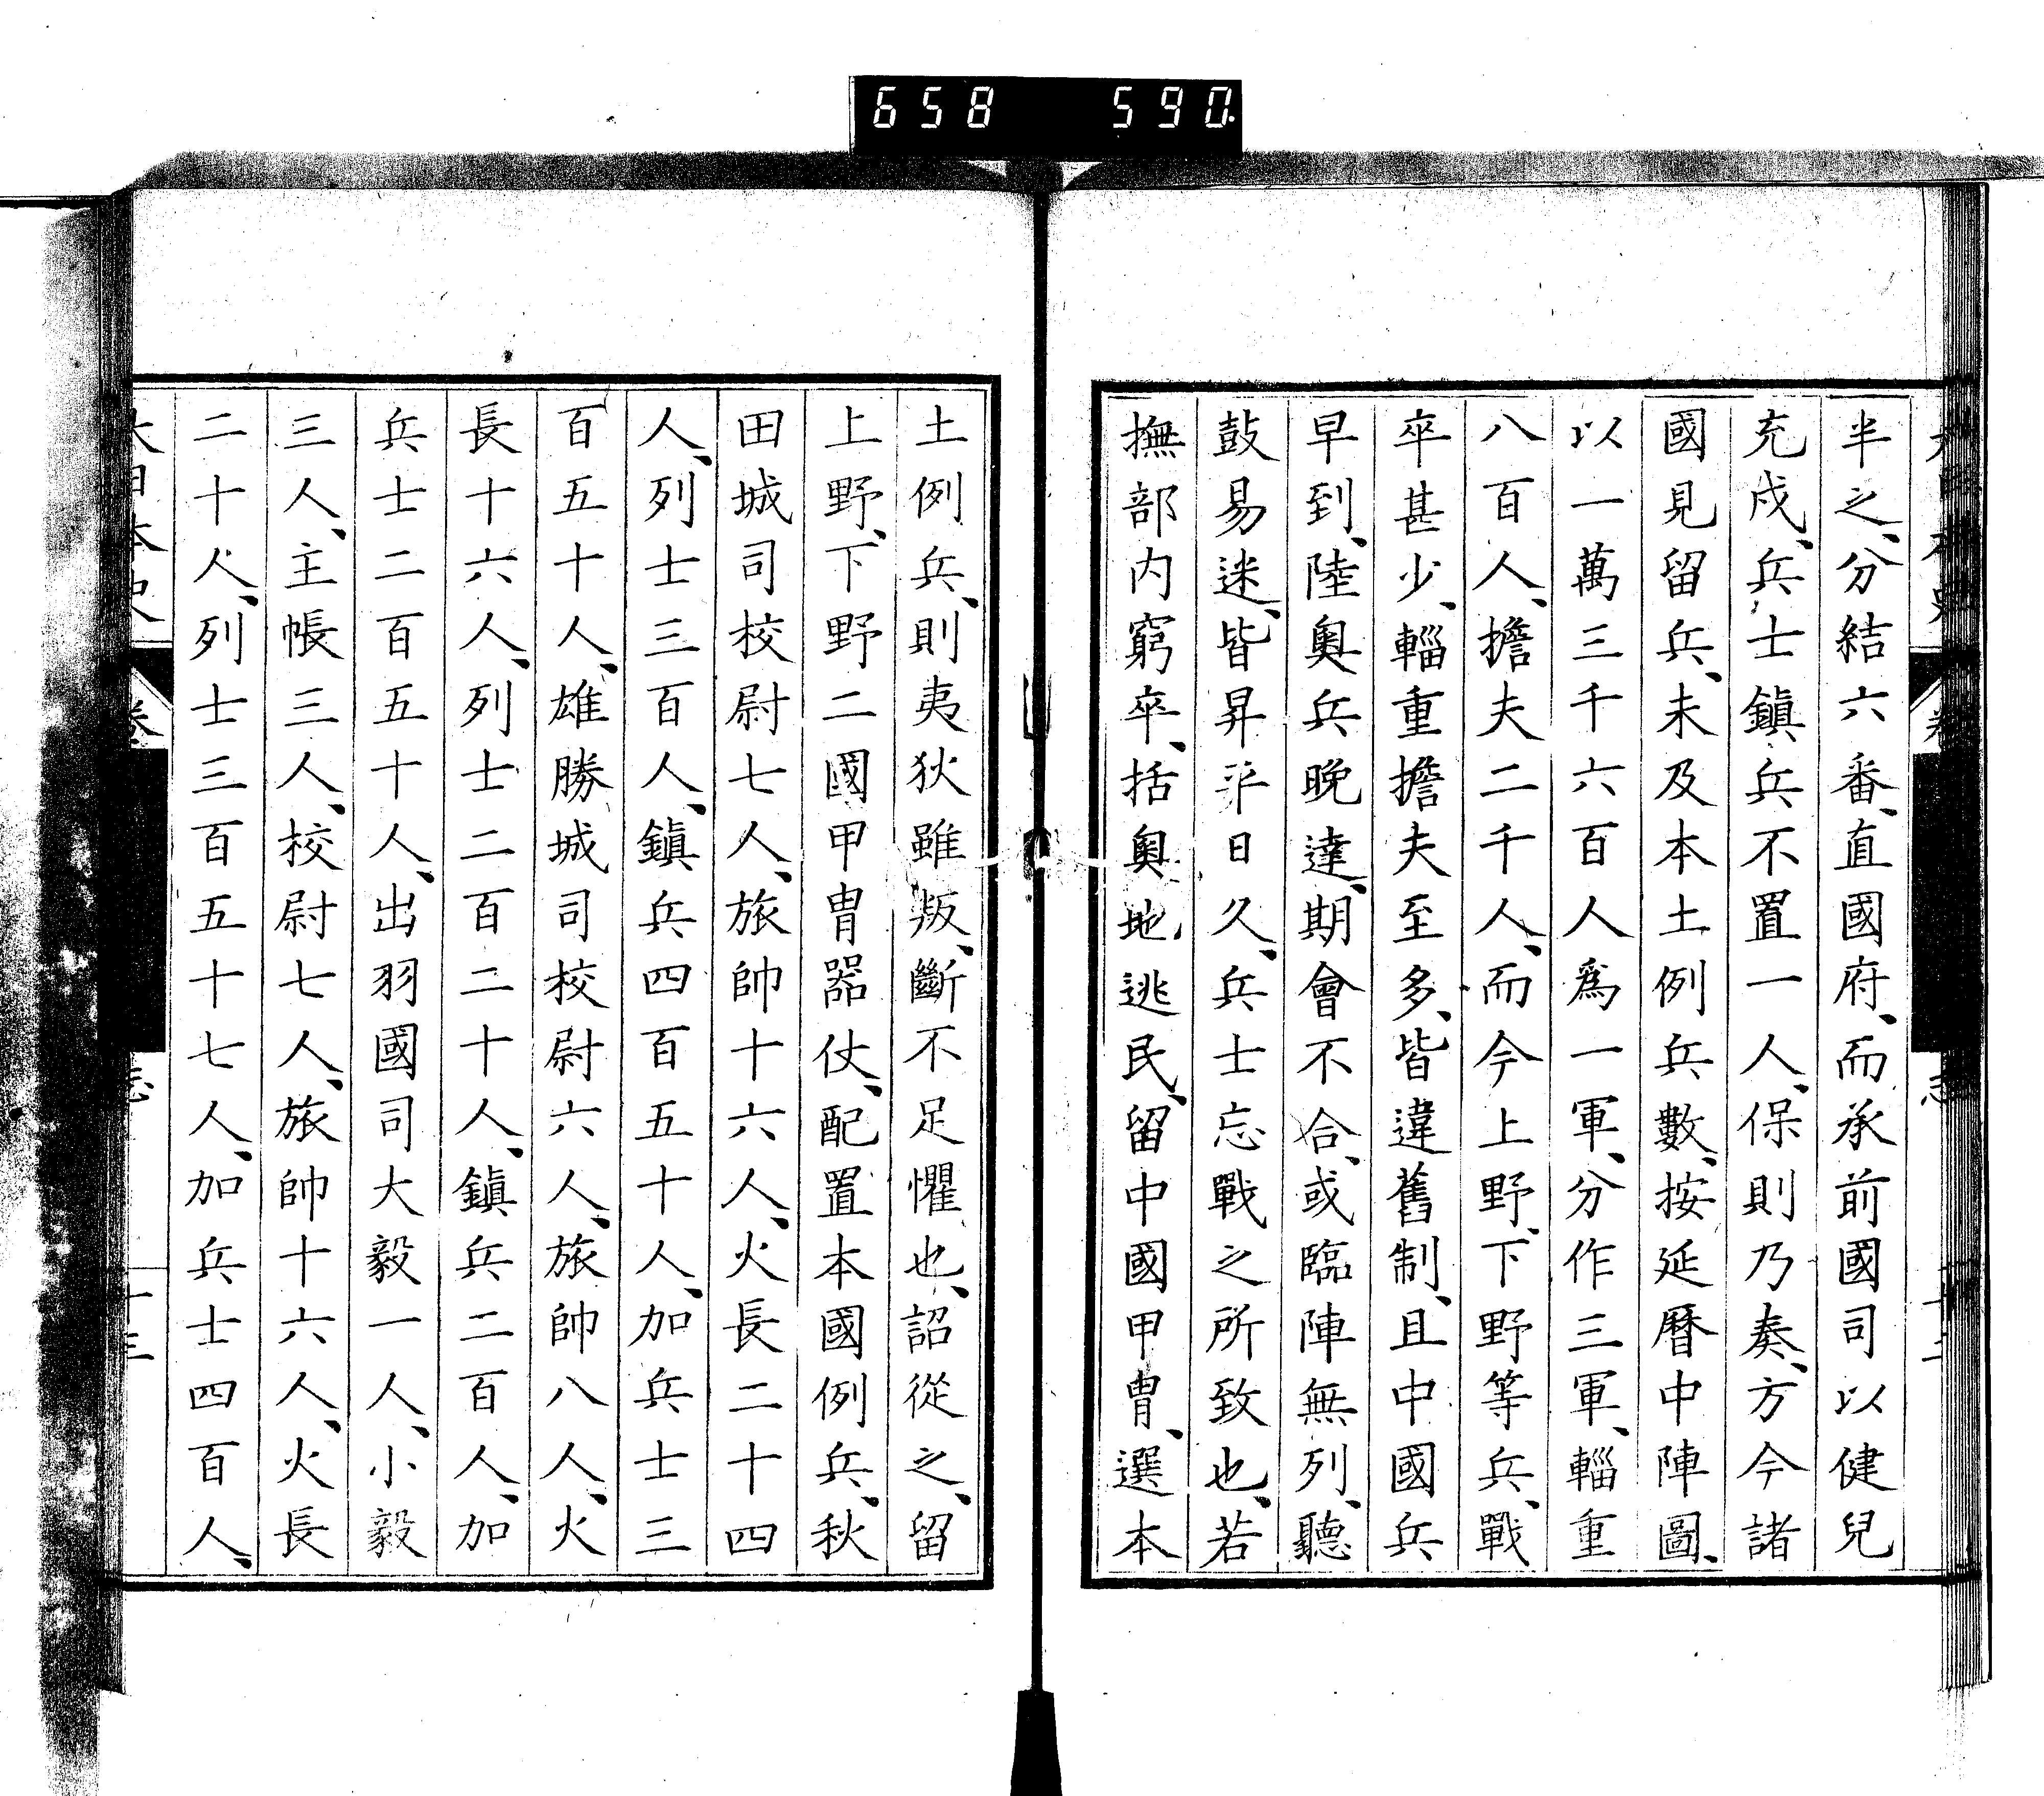 658 590
半之、分結六番、直國府、而承前國司以健兒
充戍、兵士鎭兵不置一人、保則乃奏、方今諸
國見留兵、未及本土例兵數、按延曆中陣圖、
以一萬三千六百人爲一軍、分作三軍、輜重
八百人、擔夫二千人、而今上野、下野等兵、戰
卒甚少、輜重擔夫至多、皆違舊制、且中國兵
早到、陸奧兵晚達、期會不合、或臨陣無列、聽
鼓易迷、皆昇平日久、兵士忘戰之所致也、若
撫部内窮卒、括奧地逃民、留中國甲冑、選本
土例兵、則夷狄雖叛、斷不足懼也、詔從之、留
上野、下野二國甲冑器仗、配置本國例兵、秋
田城司校尉七人、旅帥十六人、火長二十四
人、列士三百人、鎭兵四百五十人、加兵士三
百五十人、雄勝城司校尉六人、旅帥八人、火
長十六人、列士二百二十人、鎭兵二百人、加
兵士二百五十人、出羽國司大毅一人、小毅
三人、主帳三人、校尉七人、旅帥十六人、火長
二十人、列士三百五十七人、加兵士四百人、
大日本史 卷 志 十三